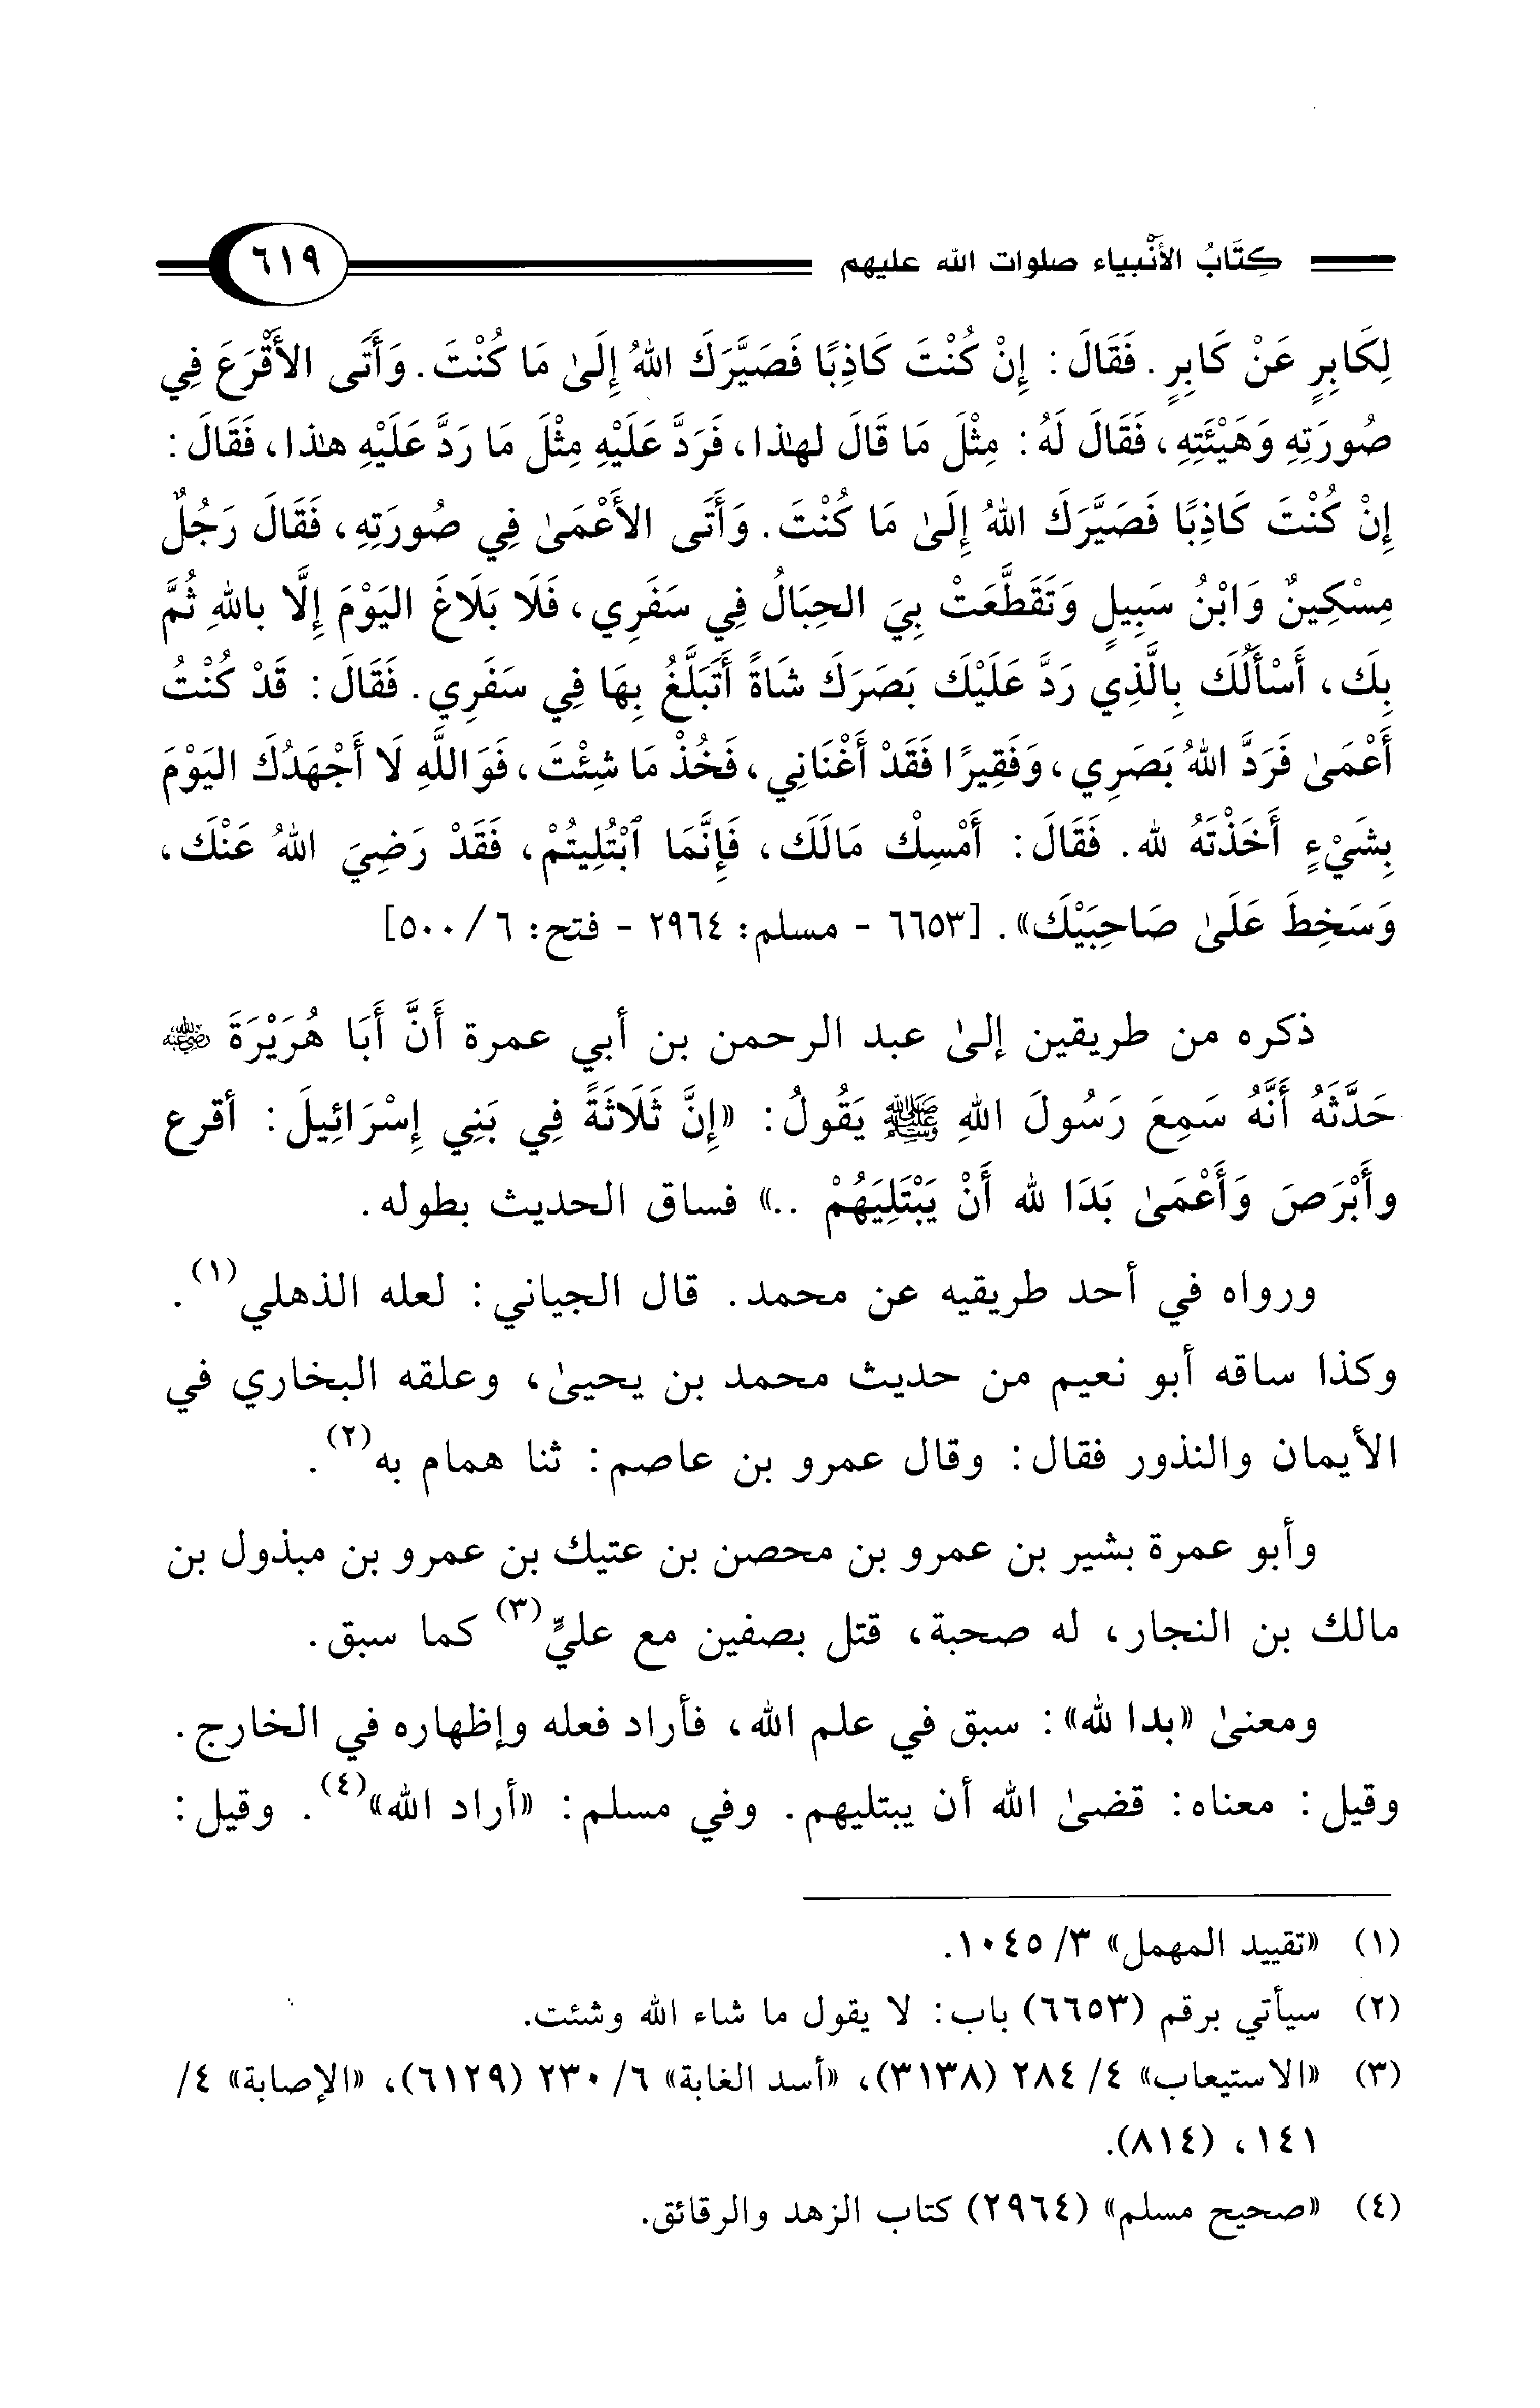 كِتَابُ الأَنْبياء صلوات الله عليهم ٦١٩
لِكَابِرٍ عَنْ كَابِرٍ. فَقَالَ: إِنْ كُنْتَ كَاذِبًا فَصَيَّرَكَ اللهُ إِلَىٰ مَا كُنْتَ. وَأَتَى الأَقْرَعَ فِي
صُورَتِهِ وَهَيْئَتِهِ، فَقَالَ لَهُ: مِثْلَ مَا قَالَ لهذا، فَرَدَّ عَلَيْهِ مِثْلَ مَا رَدَّ عَلَيْهِ هذا، فَقَالَ:
إِنْ كُنْتَ كَاذِبًا فَصَيَّرَكَ اللهُ إِلَىٰ مَا كُنْتَ. وَأَتَى الأَعْمَىٰ فِي صُورَتِهِ، فَقَالَ رَجُلٌ
مِسْكِينٌ وَابْنُ سَبِيلٍ وَتَقَطَّعَتْ بِيَ الحِبَالُ فِي سَفَرِي، فَلَا بَلَاغَ اليَوْمَ إِلَّا باللهِ ثُمَّ
بِكَ، أَسْأَلُكَ بِالَّذِي رَدَّ عَلَيْكَ بَصَرَكَ شَاةً أَتَبَلَّغُ بِهَا فِي سَفَرِي. فَقَالَ: قَدْ كُنْتُ
أَعْمَىٰ فَرَدَّ اللهُ بَصَرِي، وَفَقِيرًا فَقَدْ أَغْنَانِي، فَخُذْ مَا شِئْتَ، فَوَاللَّهِ لَا أَجْهَدُكَ اليَوْمَ
بِشَيْءٍ أَخَذْتَهُ لله. فَقَالَ: أَمْسِكْ مَالَكَ، فَإِنَّمَا ٱبْتُلِيتُمْ، فَقَدْ رَضِيَ اللهُ عَنْكَ،
وَسَخِطَ عَلَىٰ صَاحِبَيْكَ». [٦٦٥٣ - مسلم: ٢٩٦٤ - فتح: ٦/ ٥٠٠]
ذكره من طريقين إلىٰ عبد الرحمن بن أبي عمرة أَنَّ أَبَا هُرَيْرَةَ رضي الله عنه
حَدَّثَهُ أَنَّهُ سَمِعَ رَسُولَ اللهِ ﷺ يَقُولُ: «إِنَّ ثَلَاثَةً فِي بَنِي إِسْرَائِيلَ: أقرع
وأَبْرَصَ وَأَعْمَىٰ بَدَا لله أَنْ يَبْتَلِيَهُمْ ..» فساق الحديث بطوله.
ورواه في أحد طريقيه عن محمد. قال الجياني: لعله الذهلي(١).
وكذا ساقه أبو نعيم من حديث محمد بن يحيىٰ، وعلقه البخاري في
الأيمان والنذور فقال: وقال عمرو بن عاصم: ثنا همام به(٢).
وأبو عمرة بشير بن عمرو بن محصن بن عتيك بن عمرو بن مبذول بن
مالك بن النجار، له صحبة، قتل بصفين مع عليٍّ(٣) كما سبق.
ومعنىٰ «بدا لله»: سبق في علم الله، فأراد فعله وإظهاره في الخارج.
وقيل: معناه: قضىٰ الله أن يبتليهم. وفي مسلم: «أراد الله»(٤). وقيل:
(١) «تقييد المهمل» ٣/ ١٠٤٥.
(٢) سيأتي برقم (٦٦٥٣) باب: لا يقول ما شاء الله وشئت.
(٣) «الاستيعاب» ٤/ ٢٨٤ (٣١٣٨)، «أسد الغابة» ٦/ ٢٣٠ (٦١٢٩)، «الإصابة» ٤/
١٤١، (٨١٤).
(٤) «صحيح مسلم» (٢٩٦٤) كتاب الزهد والرقائق.